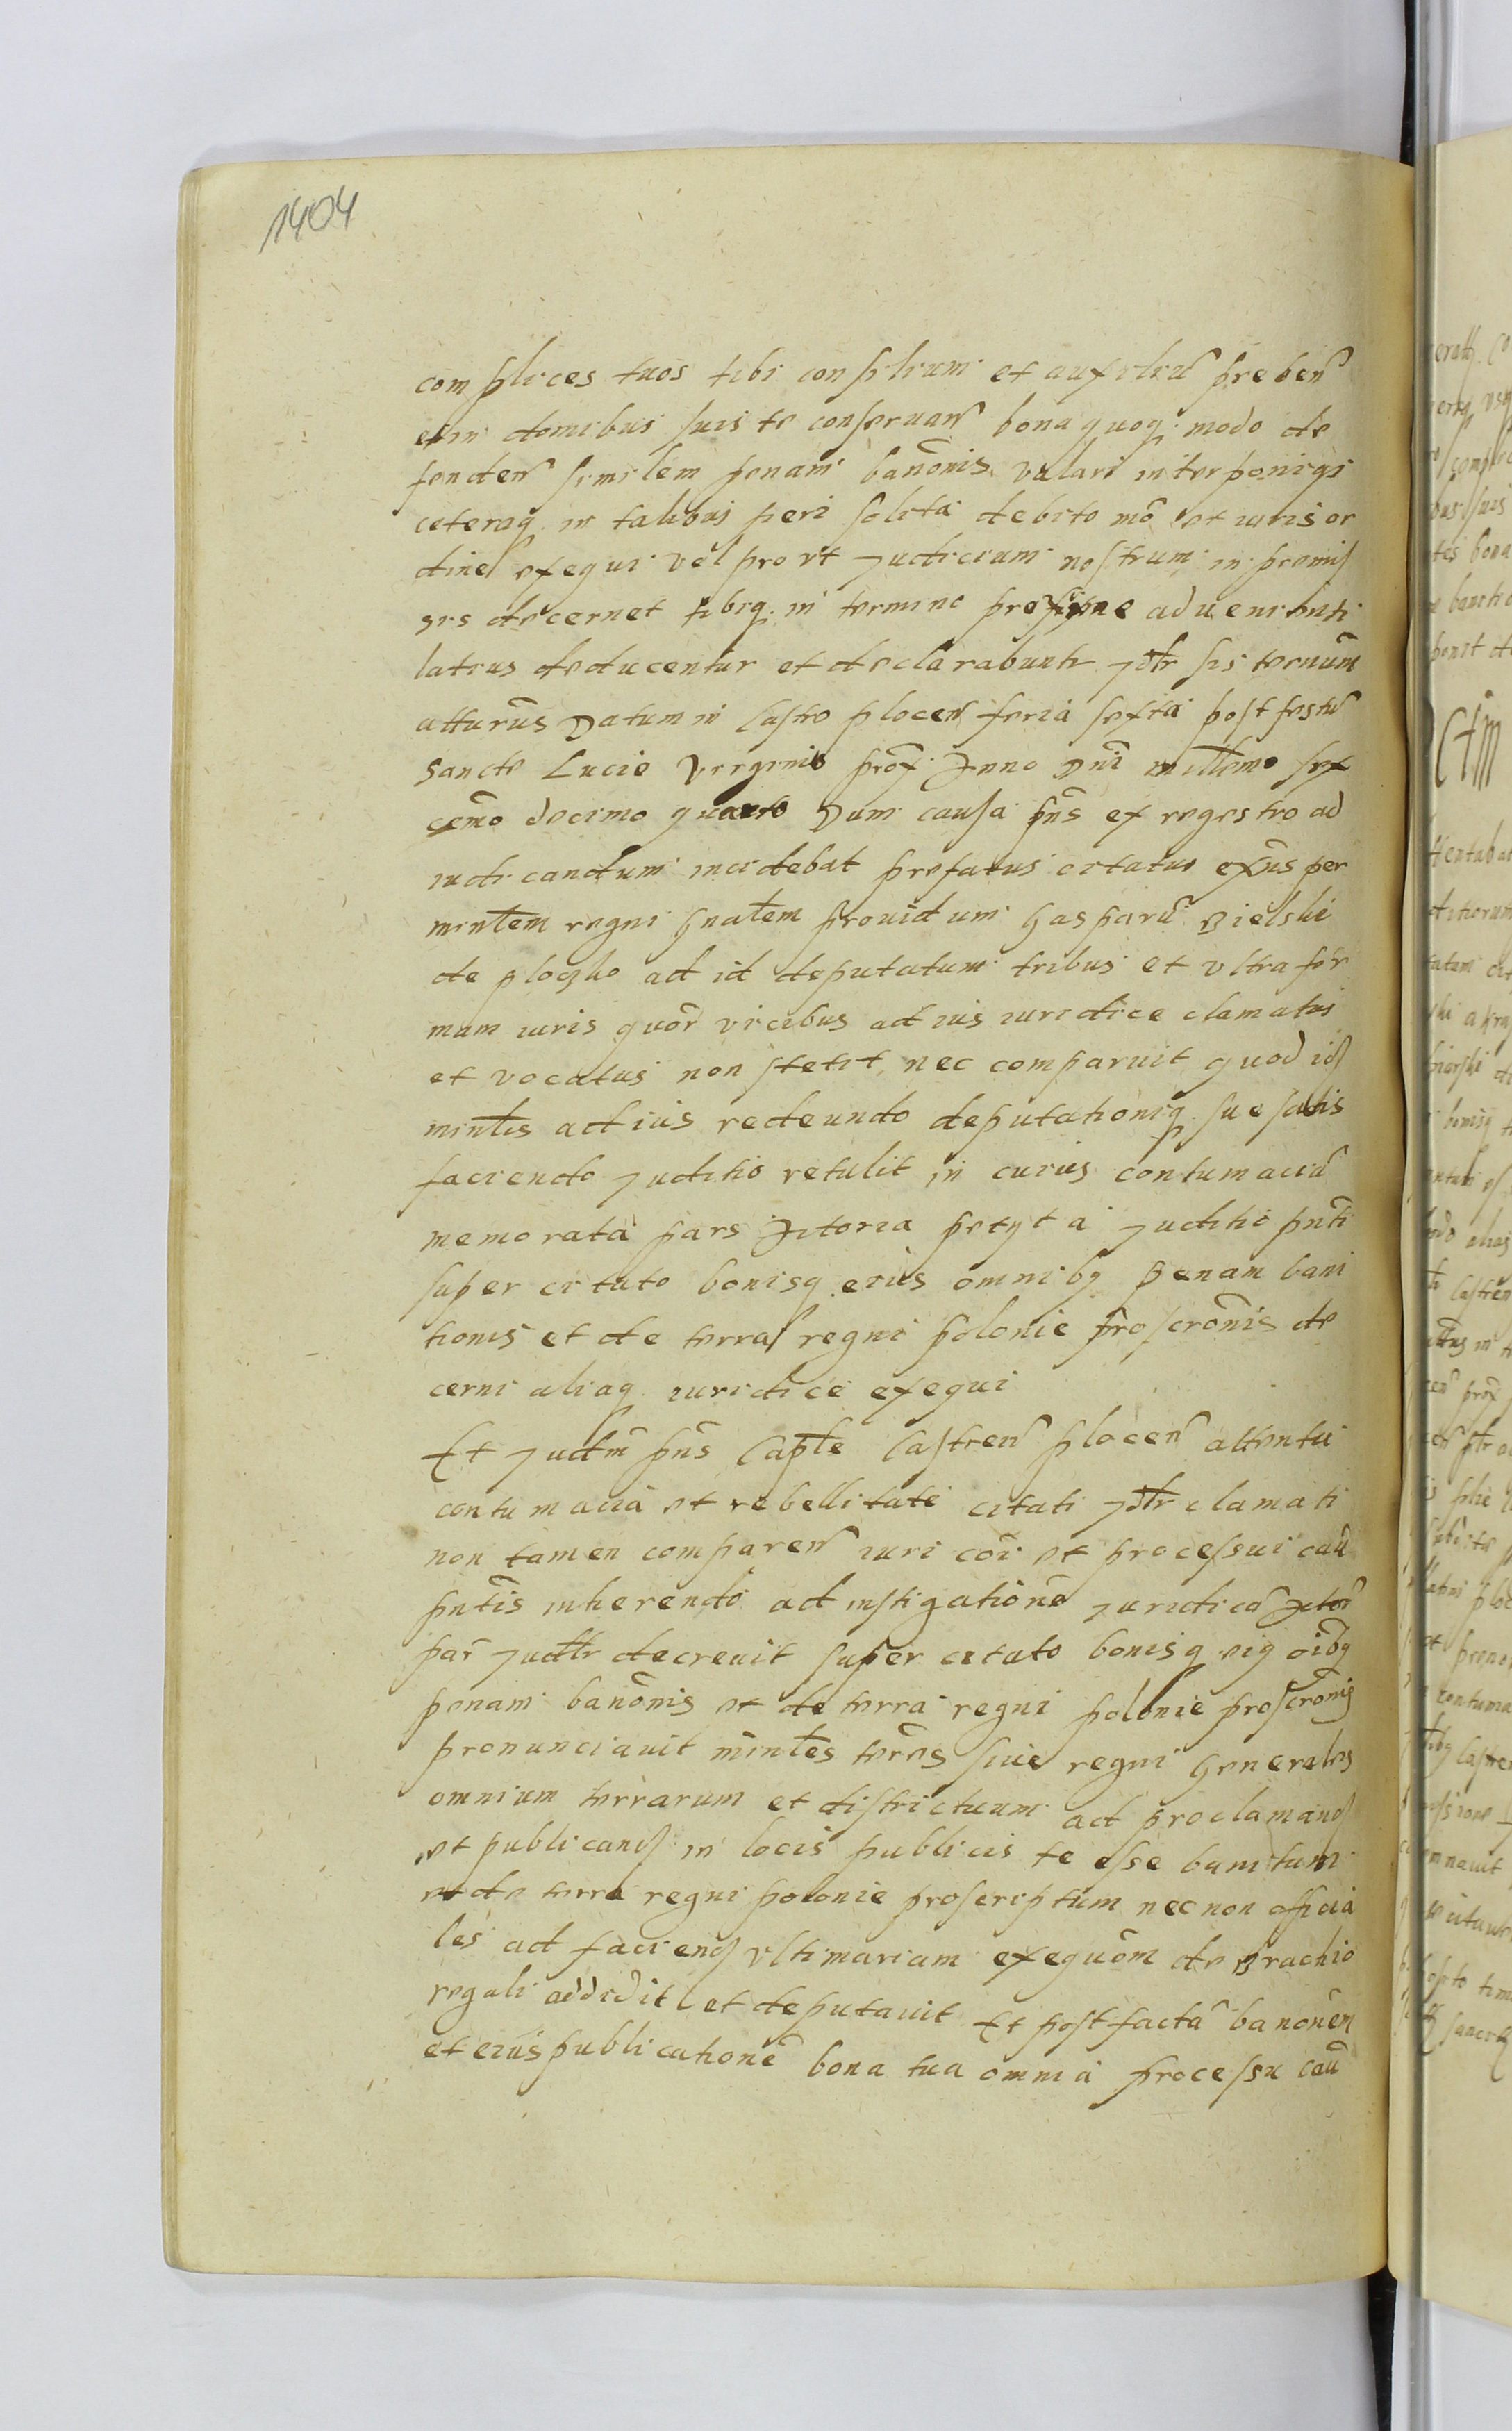 1404
com plices tuos tibi consilium et auxiliũ preben̄
et in domibus suis te conseruan̄ bona quoq; modo de
fenden̄ similem penam banõnis valari interponiqs
ceteraq; in talibus fieri solita debito mõ et iuris or
dine exequi vel pro vt Judicium nostrum in premis
sis decernet tibiq; in termino prefixo adueniente
latius deducentur et declarabuntr Jdtr sis ternum̃
atturũs Datum in Castro plocen̄ feria sexta post festũ
Sancte Lucie virginis prox̃ Anno Dni millemo sex
cenõ decimo quarto Dum causa pñs ex regestro ad
iudicandum incidebat prefatus citatus exñs per
minłem regni gnałem prouidum Gasparũ Bielski
de ploczko ad id deputatum tribus et vltra for
mam iuris quor̃ vicibus ad ius iuridice clamatus
et vocatus non stetit nec comparuit quod idẽ
minłis ad ius redeundo deputationiq; sue satis
faciendo Juditio retulit in cuius contumaciã
memorata pars Actorea petyt a Juditio pñti
super citato bonisq; eius omnibq Penam bani
tionis et de terra regni Polonie proscrõnis de
cerni aliaq; iuridice exequi
Et Judm̃ pñs Capłe Castren̄ plocen̄ attenta
contumacia et rebellitate citati Jdtr clamati
non tamen comparen̄ iuri coĩ et processui caũ
pñtis inherendo ad instigationẽ Juridicã Actor̃
par̃ Judtr decreuit super citato bonisq eiq oĩbq
penam banõnis et de terra regni polonie proscrõnis
pronunciauit minłes terrẽs siue regni Generales
omnium terrarum et districtuum ad proclamanđ
et publicanđ in locis publicis te esse banitum
et de terra regni polonie proscriptum nec non officia
les ad faciend vltimariam exequõm de Brachio
regali addidit et deputauit Et post factã banõnem
et eius publicationẽ bona tua omnia processu caũ